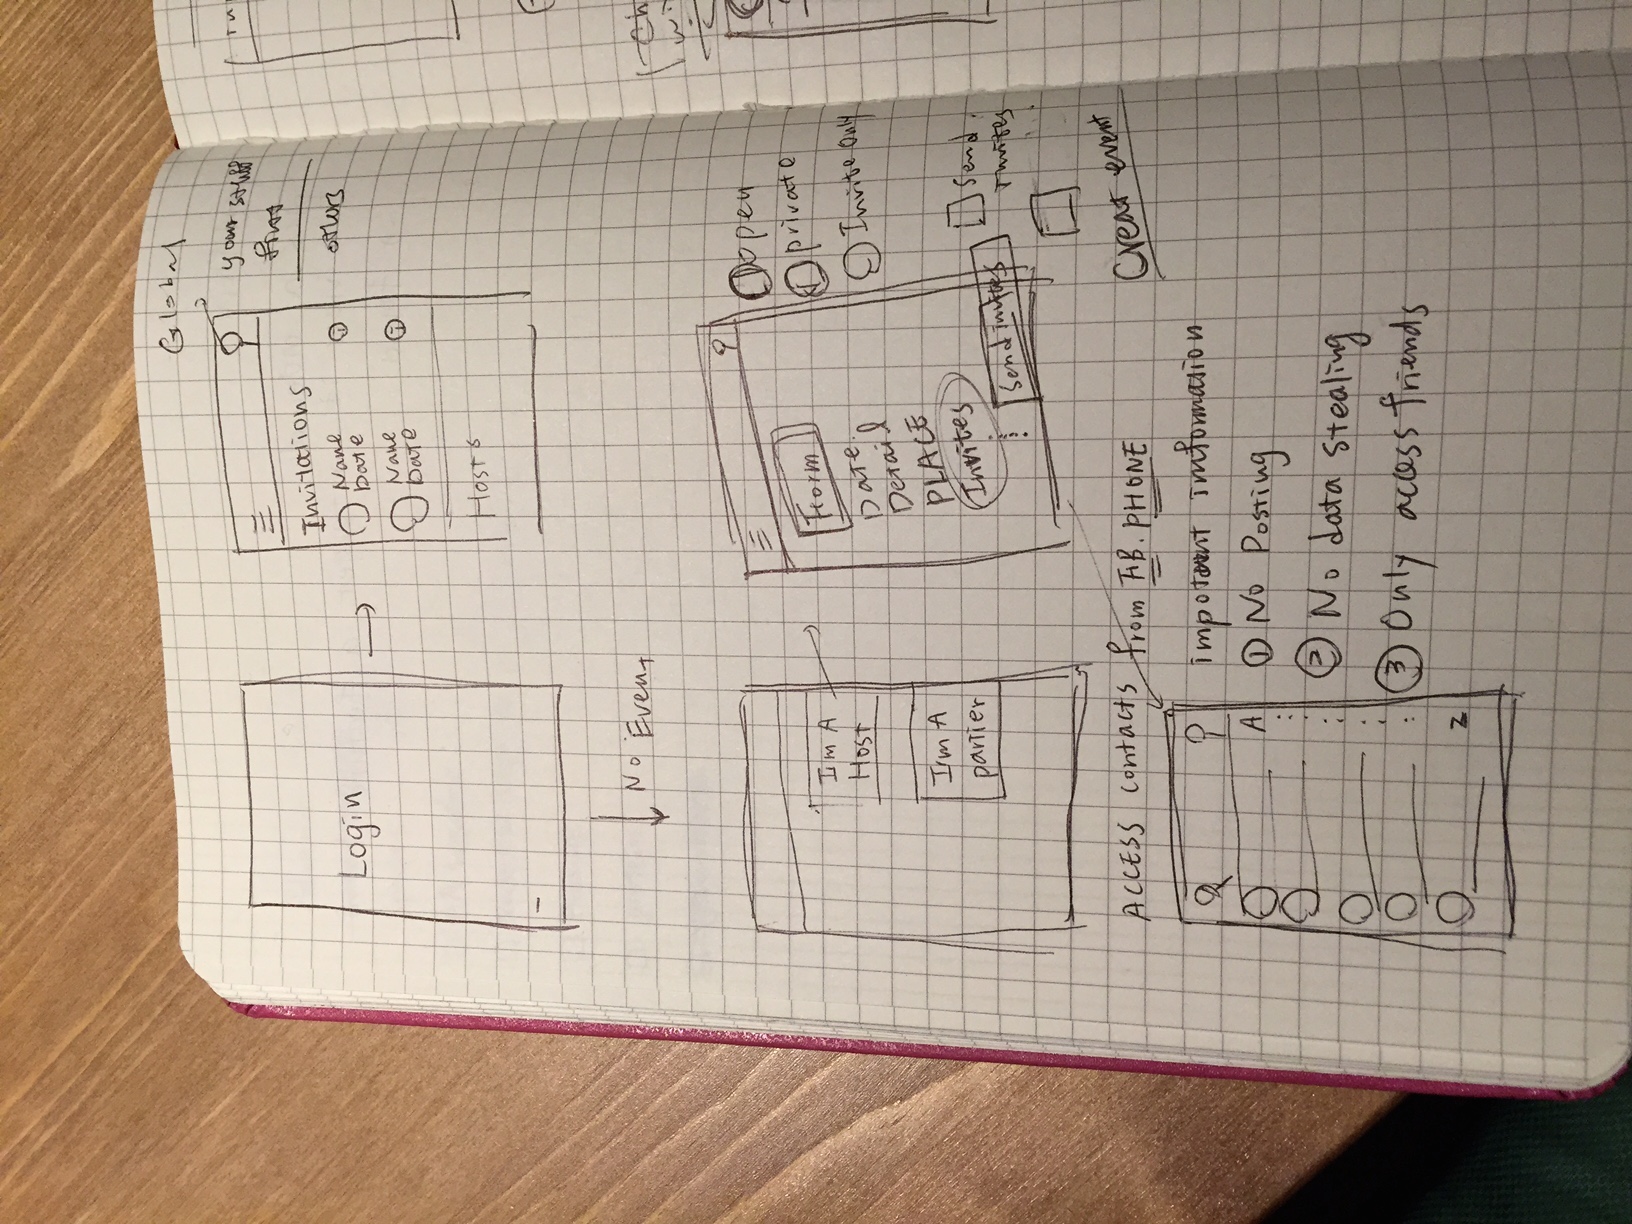 Login
→
Global
Invitations
Name
Date
Name
Date
Hosts
your stuff
first
others
↓ No Event
I'm A
Host
I'm A
partier
Form
Date
Detail
PLACE
Invites
Send invites
open
private
Invite Only
Send
invites
Creat event
ACCESS contacts from FB. PHONE
A
Z
impotant information
① No Posting
② No data stealing
③ Only access friends